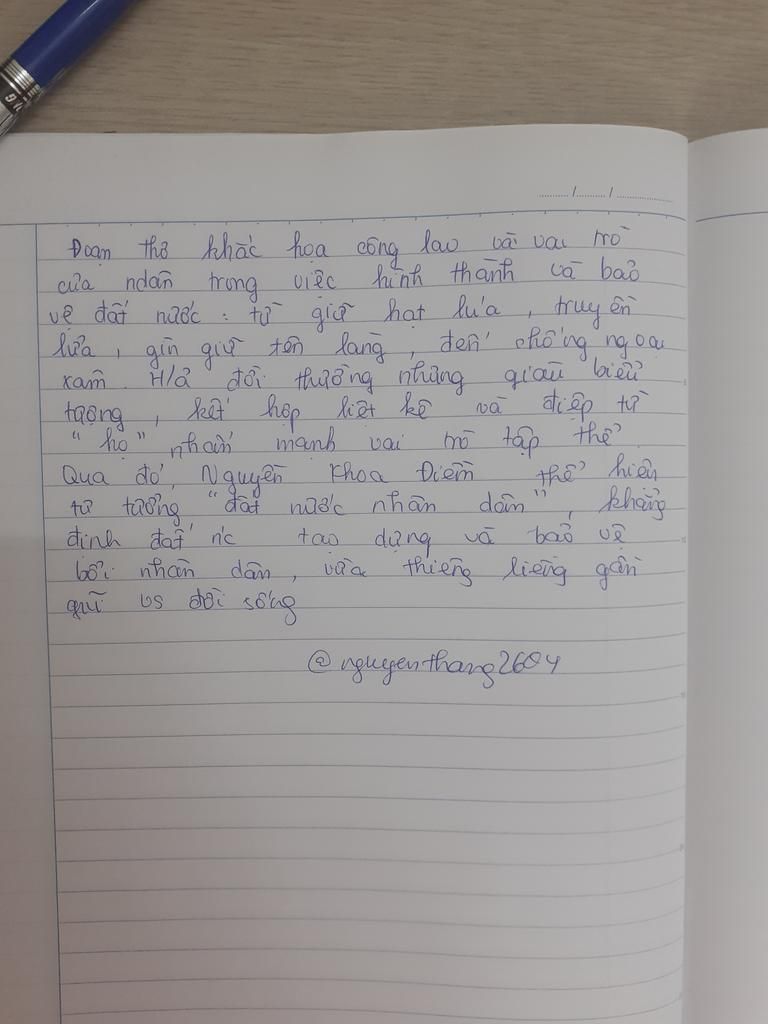 Đoạn thơ khắc họa công lao và vai trò
của ndân trong việc hình thành và bảo
vệ đất nước : từ giữ hạt lúa , truyền
lửa , gìn giữ tên làng , đến chống ngoại
xâm . H/ả đời thường nhưng giàu biểu
tượng , kết hợp liệt kê và điệp từ
“ họ ” nhấn mạnh vai trò tập thể .
Qua đó , Nguyễn Khoa Điềm thể hiện
tư tưởng “ đất nước nhân dân ” , khẳng
định đất nc tạo dựng và bảo vệ
bởi nhân dân , vừa thiêng liêng gần
gũi vs đời sống
@nguyenthang2604